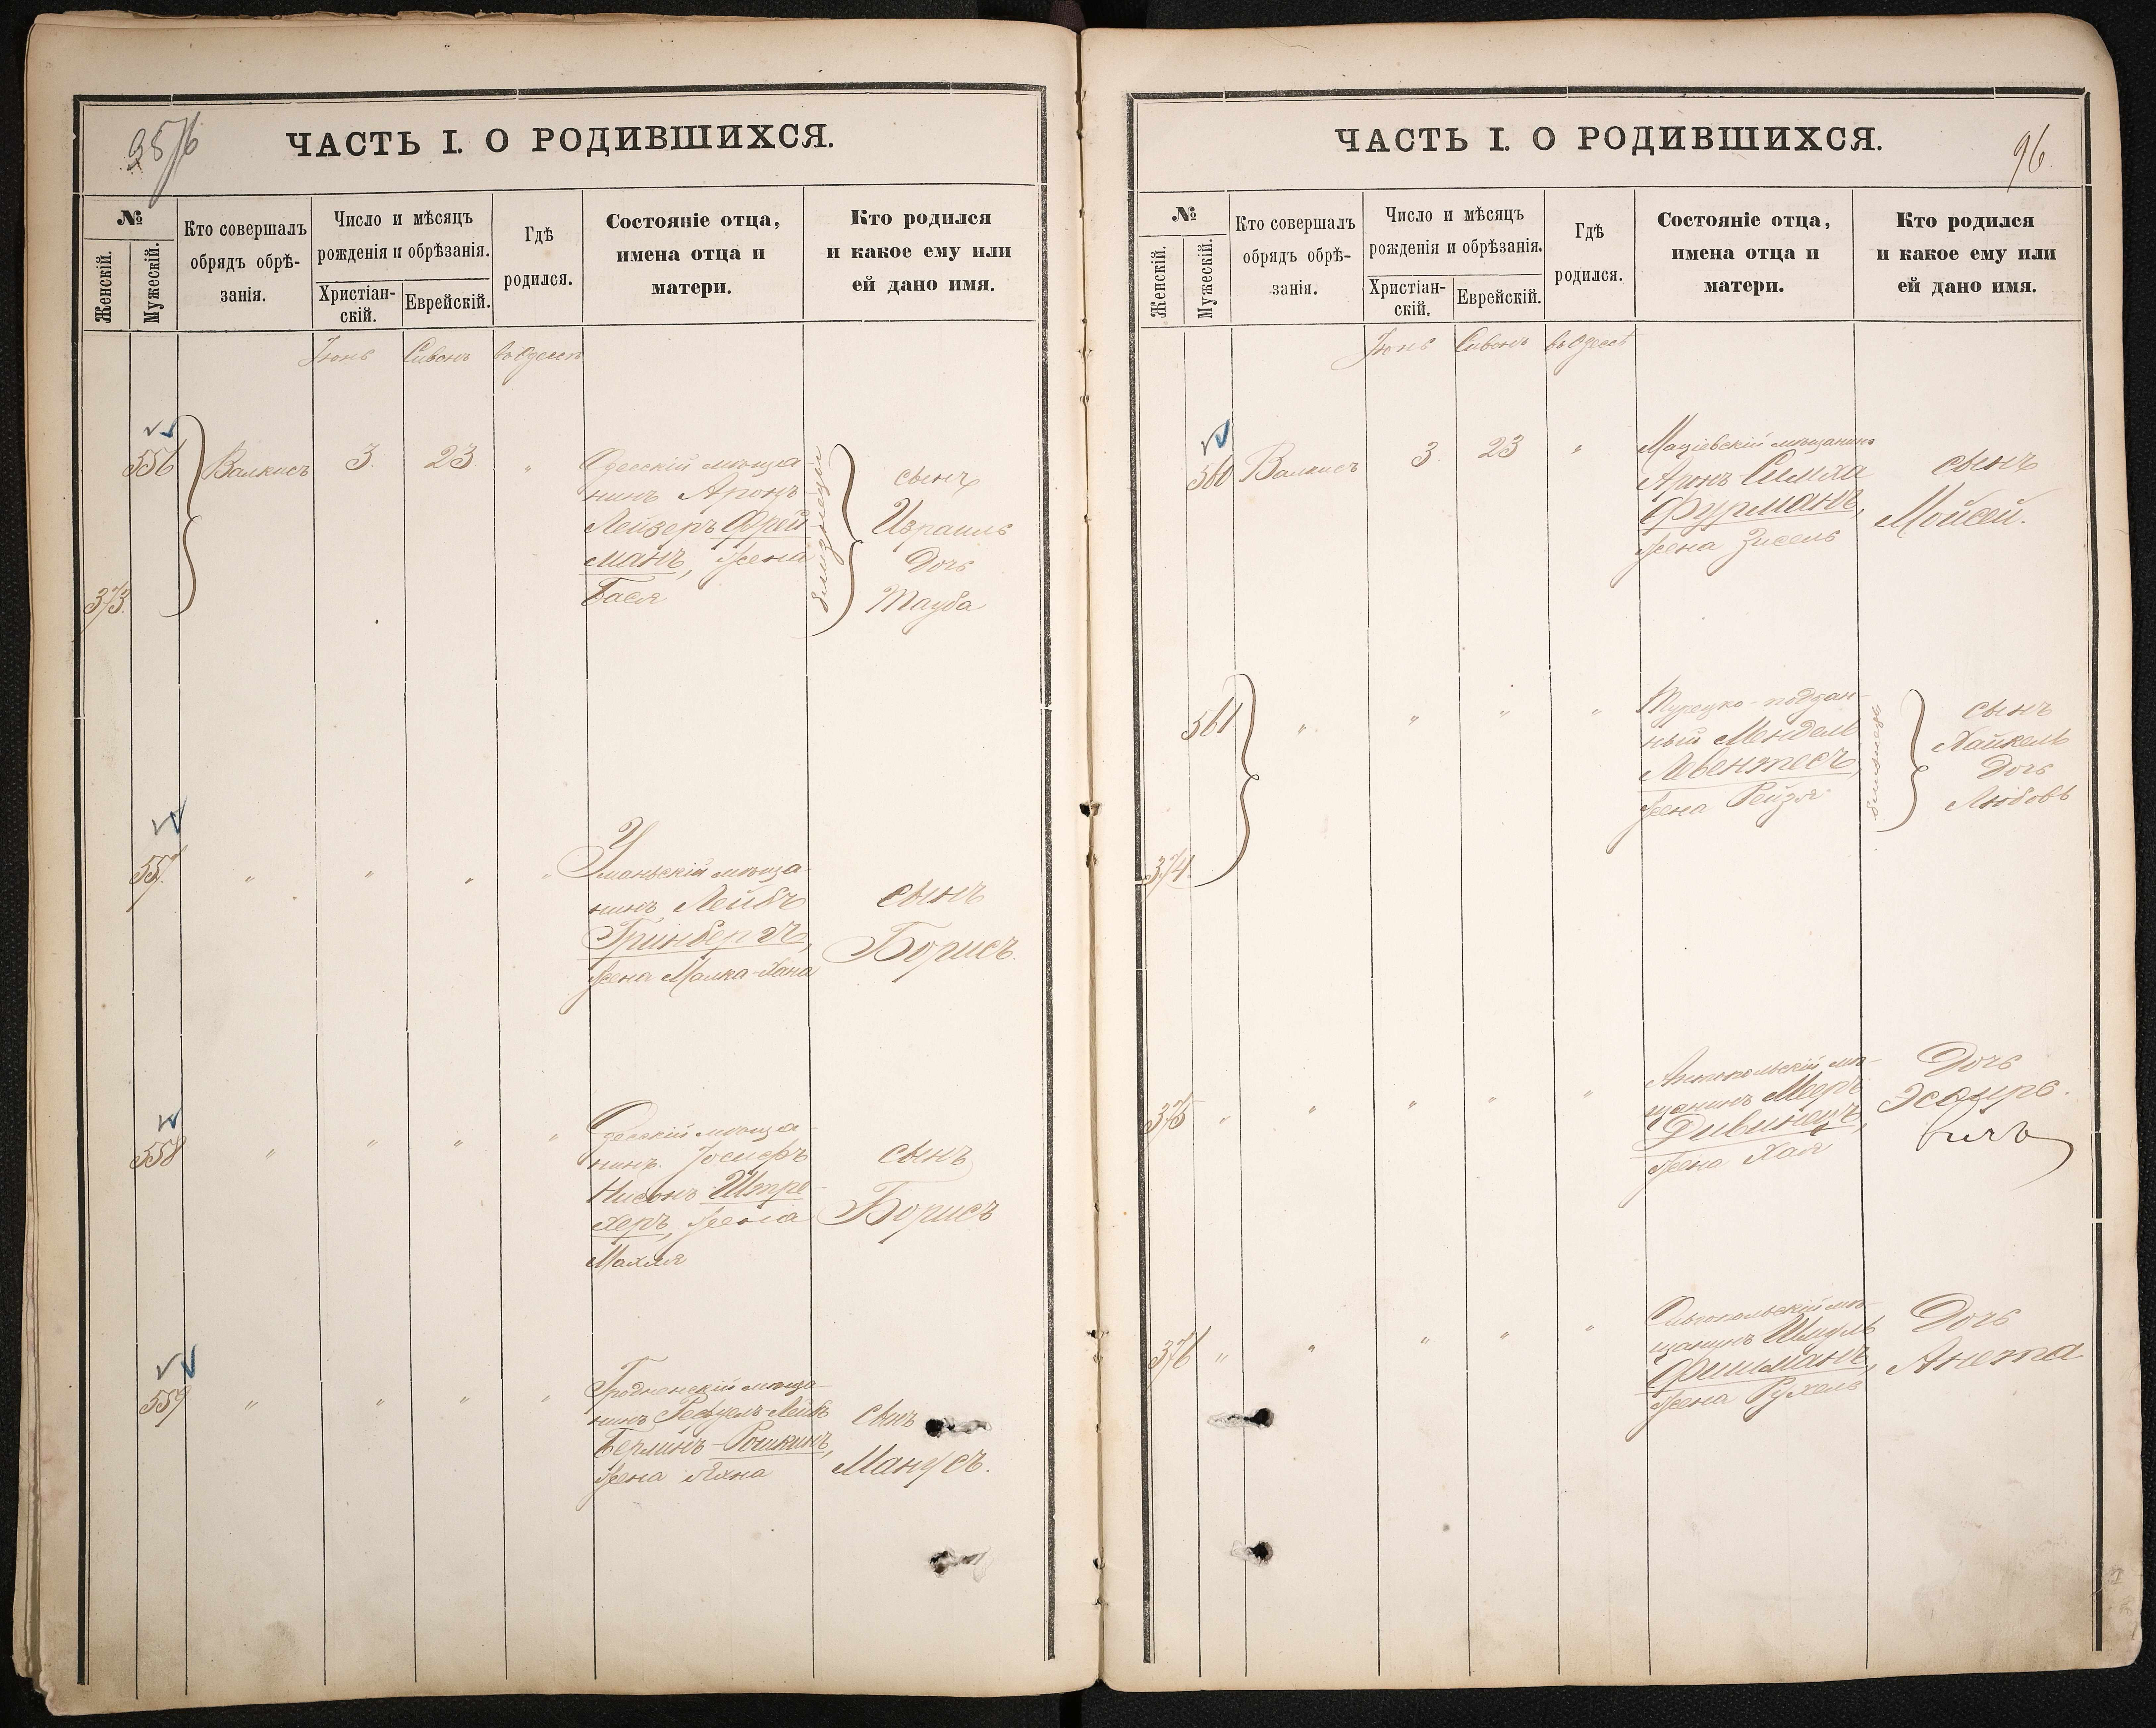 ЧАСТЬ I. О РОДИВШИХСЯ.
№
Женскій.
Мужескій.
Кто совершалъ
обрядъ обрѣ-
занія.
Число и мѣсяцъ
рожденія и обрѣзанія.
Христіан-
скій.
Еврейскій.
Гдѣ
родился.
Состояніе отца,
имена отца и
матери.
Кто родился
и какое ему или
ей дано имя.
Іюнь Сивонъ въ Одессѣ
556 Валкисъ 3. 23 "
373.
Одесскій мѣща-
нинъ Аронъ
Лейзеръ Фрей
манъ, жена
Бася
близнецы
сынъ
Израиль
Дочь
Тауба
557. " " " "
Уманьскій мѣща-
нинъ Лейбъ
Гринбергъ,
жена Малка-Хана
сынъ
Борисъ.
558 " " " "
Одесскій мѣща-
нинъ Іосифъ
Нисонъ Штре-
херъ, жена
Махля
сынъ
Борисъ
559 " " " "
Гродненскій мѣща-
нинъ Рефуелъ-Лейбъ
Берлинъ-Рошкинъ,
жена Яхна
сынъ
Манусъ.
ЧАСТЬ I. О РОДИВШИХСЯ.
96.
№
Женскій.
Мужескій.
Кто совершалъ
обрядъ обрѣ-
занія.
Число и мѣсяцъ
рожденія и обрѣзанія.
Христіан-
скій.
Еврейскій.
Гдѣ
родился.
Состояніе отца,
имена отца и
матери.
Кто родился
и какое ему или
ей дано имя.
Іюнь Сивонъ въ Одессѣ
560 Валкисъ 3 23 "
Маціевскій мѣщанинъ
Аронъ Симха
Фурманъ,
жена Зисель
сынъ
Мойсей.
561 " " " "
374.
Турецко-поддан-
ный Мендель
Левентесъ,
жена Рейзя
близнецы
сынъ
Хайкель
Дочь
Любовь
375 " " " " "
щанинъ Мееръ
жена Хая
Дочь
Эсѳирь.
376 " " " " "
щанинъ Шмуль
Фишманъ,
жена Рухель
Дочь
Анета